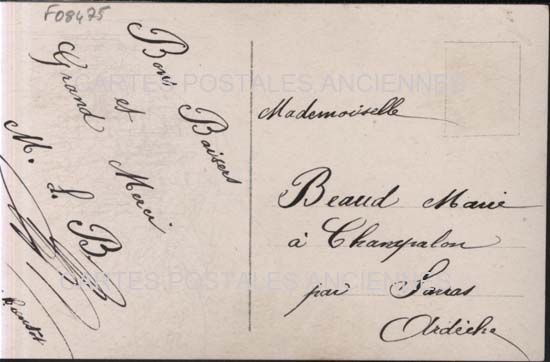 F08475
Bons Baisers
et
Grand Merci
M. L. B.
Mademoiselle
Beaud Marie
à Champalon
par Sarras
Ardèche
CARTES POSTALES ANCIENNES
CARTES POSTALES ANCIENNES